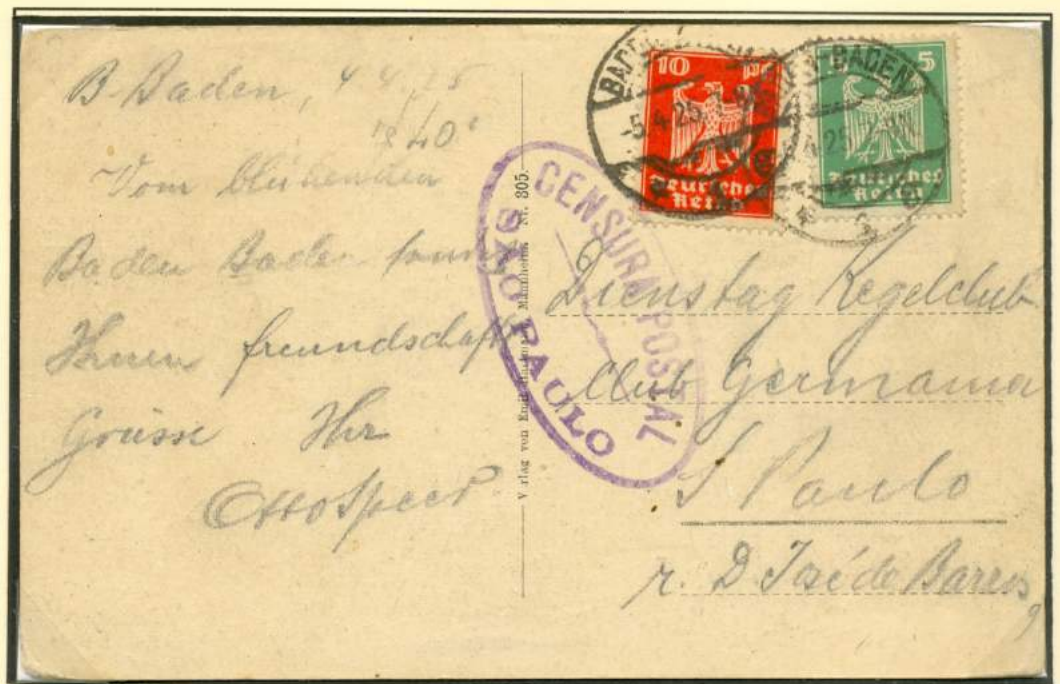 B. Baden, 4 4 25
Vom blühenden
Baden Baden
Ihnen freundschaftl
Grüsse Ihr
Otto Speer
Verlag von Mannheim Nr. 305.
CENSURA POSTAL
SÃO PAULO
BADEN-BADEN
-5.4.25
10 Pf
Deutsches
Reich
BADEN
4.25
5
Deutsches
Reich
Dienstag Kegelclub
Club Germania
S Paulo
r. D. José de Barros,
9